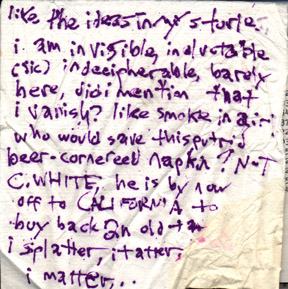 like the ideas in my sturies
i am invisible, inductable
(sic) indecipherable, barely
here, did i mention that
i vanish? like smoke in air
who would save this putrid
beer-cornered napkin? NOT
C. WHITE, he is by now
off to CALIFORNIA to
buy back an old
i splatter, i tatter,
i matter...